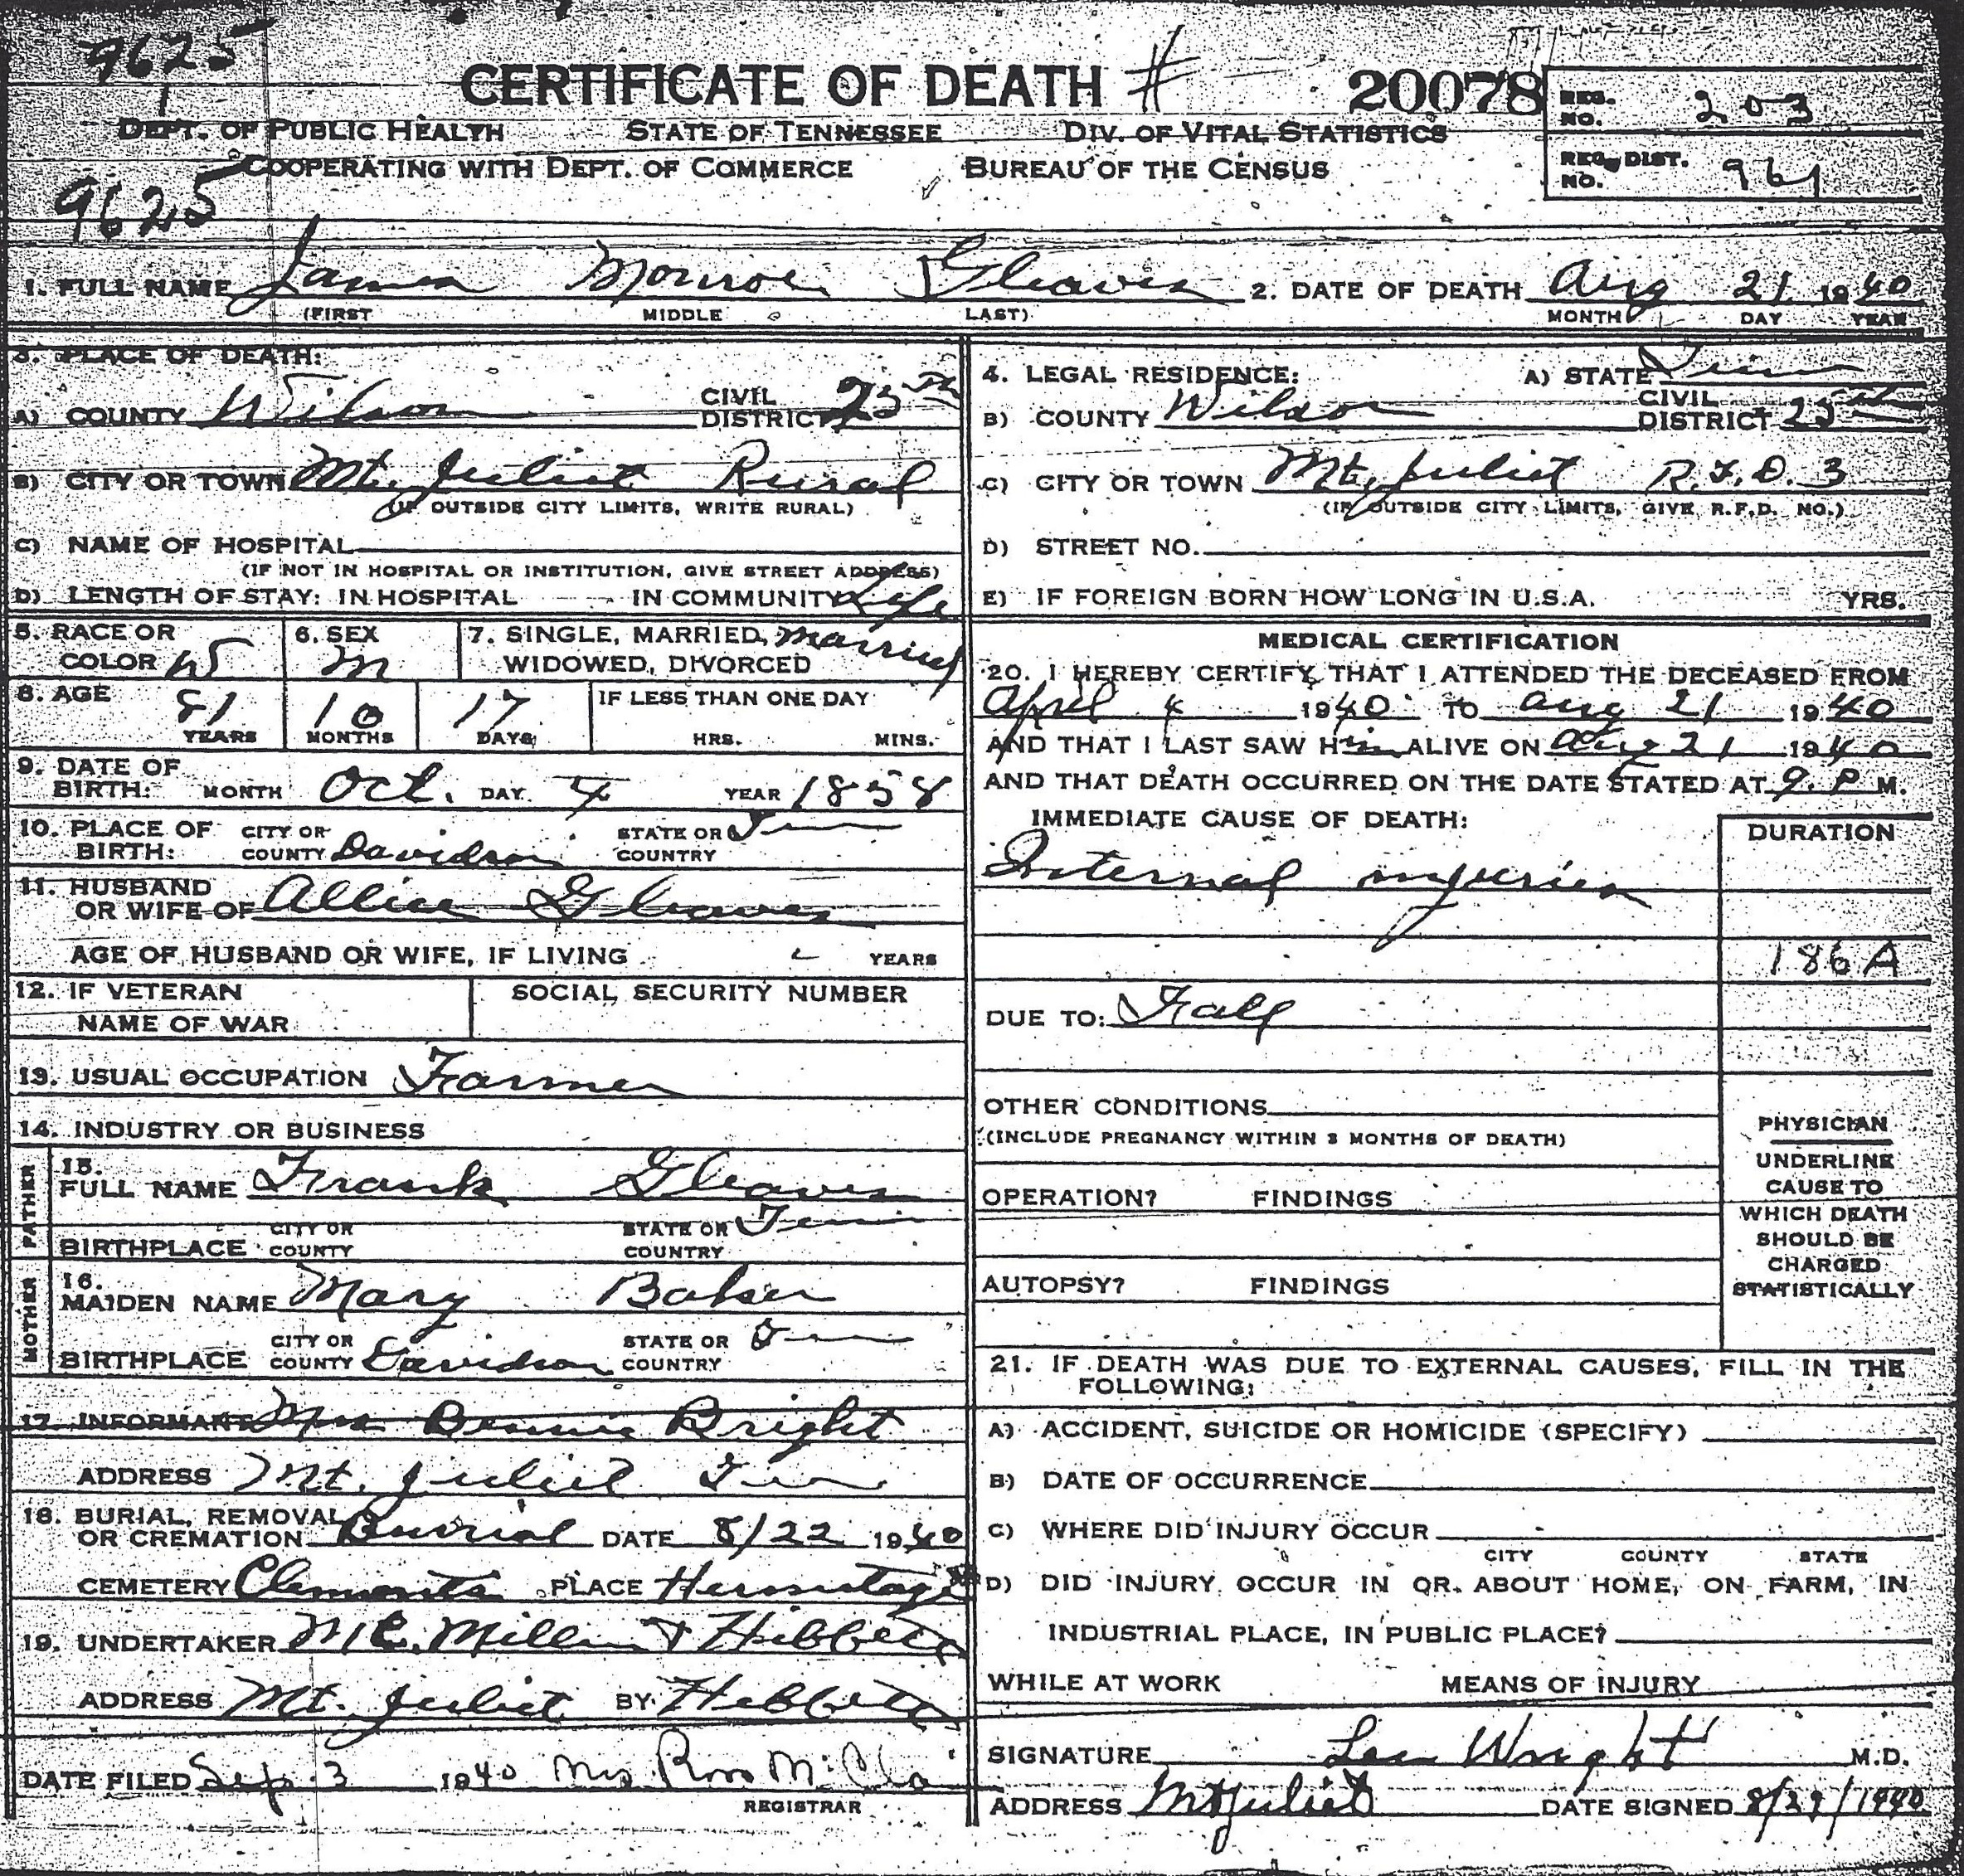 9625
CERTIFICATE OF DEATH # 20078 REG. NO. 203
DEPT. OF PUBLIC HEALTH STATE OF TENNESSEE DIV. OF VITAL STATISTICS
COOPERATING WITH DEPT. OF COMMERCE BUREAU OF THE CENSUS REG. DIST. NO. 961
9625
1. FULL NAME James Monroe Gleaves 2. DATE OF DEATH Aug 21 1940
(FIRST MIDDLE LAST) MONTH DAY YEAR
3. PLACE OF DEATH:
A) COUNTY Wilson CIVIL DISTRICT 25th
B) CITY OR TOWN Mt. Juliet Rural
(IF OUTSIDE CITY LIMITS, WRITE RURAL)
C) NAME OF HOSPITAL
(IF NOT IN HOSPITAL OR INSTITUTION, GIVE STREET ADDRESS)
D) LENGTH OF STAY: IN HOSPITAL IN COMMUNITY Life
4. LEGAL RESIDENCE: A) STATE Tenn
B) COUNTY Wilson CIVIL DISTRICT 25th
C) CITY OR TOWN Mt. Juliet R.F.D. 3
(IF OUTSIDE CITY LIMITS, GIVE R.F.D. NO.)
D) STREET NO.
E) IF FOREIGN BORN HOW LONG IN U.S.A. YRS.
5. RACE OR COLOR W 6. SEX M 7. SINGLE, MARRIED, WIDOWED, DIVORCED Married
8. AGE 81 10 17 IF LESS THAN ONE DAY
YEARS MONTHS DAYS HRS. MINS.
9. DATE OF BIRTH: MONTH Oct. DAY 4 YEAR 1858
10. PLACE OF BIRTH: CITY OR COUNTY Davidson STATE OR COUNTRY Tenn
11. HUSBAND OR WIFE OF Allice Gleaves
AGE OF HUSBAND OR WIFE, IF LIVING YEARS
12. IF VETERAN NAME OF WAR SOCIAL SECURITY NUMBER
13. USUAL OCCUPATION Farmer
14. INDUSTRY OR BUSINESS
FATHER
15. FULL NAME Frank Gleaves
BIRTHPLACE CITY OR COUNTY STATE OR COUNTRY Tenn
MOTHER
16. MAIDEN NAME Mary Baker
BIRTHPLACE CITY OR COUNTY Davidson STATE OR COUNTRY Tenn
17. INFORMANT Mrs Bennie Bright
ADDRESS Mt. Juliet Tenn
18. BURIAL, REMOVAL OR CREMATION Burrial DATE 8/22 1940
CEMETERY Clemonts PLACE Hermitage
19. UNDERTAKER Mc.Millin & Hibbett
ADDRESS Mt. Juliet BY Hibbett
DATE FILED Sep. 3 1940 Mrs. Ross
REGISTRAR
MEDICAL CERTIFICATION
20. I HEREBY CERTIFY THAT I ATTENDED THE DECEASED FROM
April 4 1940 TO Aug 21 1940
AND THAT I LAST SAW Him ALIVE ON Aug 21 1940
AND THAT DEATH OCCURRED ON THE DATE STATED AT 9. P M.
IMMEDIATE CAUSE OF DEATH: DURATION
Internal injuries
186A
DUE TO: Fall
OTHER CONDITIONS
(INCLUDE PREGNANCY WITHIN 3 MONTHS OF DEATH)
OPERATION? FINDINGS
AUTOPSY? FINDINGS
PHYSICIAN
UNDERLINE
CAUSE TO
WHICH DEATH
SHOULD BE
CHARGED
STATISTICALLY
21. IF DEATH WAS DUE TO EXTERNAL CAUSES, FILL IN THE
FOLLOWING:
A) ACCIDENT, SUICIDE OR HOMICIDE (SPECIFY)
B) DATE OF OCCURRENCE
C) WHERE DID INJURY OCCUR
CITY COUNTY STATE
D) DID INJURY OCCUR IN OR ABOUT HOME, ON FARM, IN
INDUSTRIAL PLACE, IN PUBLIC PLACE?
WHILE AT WORK MEANS OF INJURY
SIGNATURE Lee Wright M.D.
ADDRESS Mt Juliet DATE SIGNED 8/29/1940